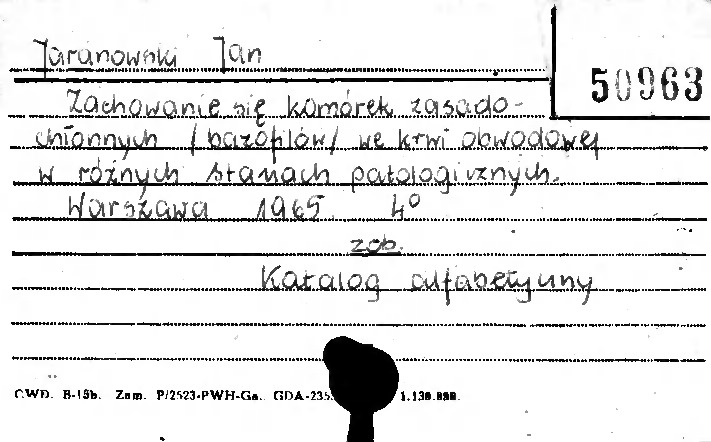 Jaranowski Jan
50963
Zachowanie się komórek zasado-
chłonnych /bazofilów/ we krwi obwodowej
w różnych stanach patologicznych.
Warszawa 1965. 4°
zob.
Katalog alfabetyczny
CWD. B-15b. Zam. P/2523-PWH-Ga. GDA-235.